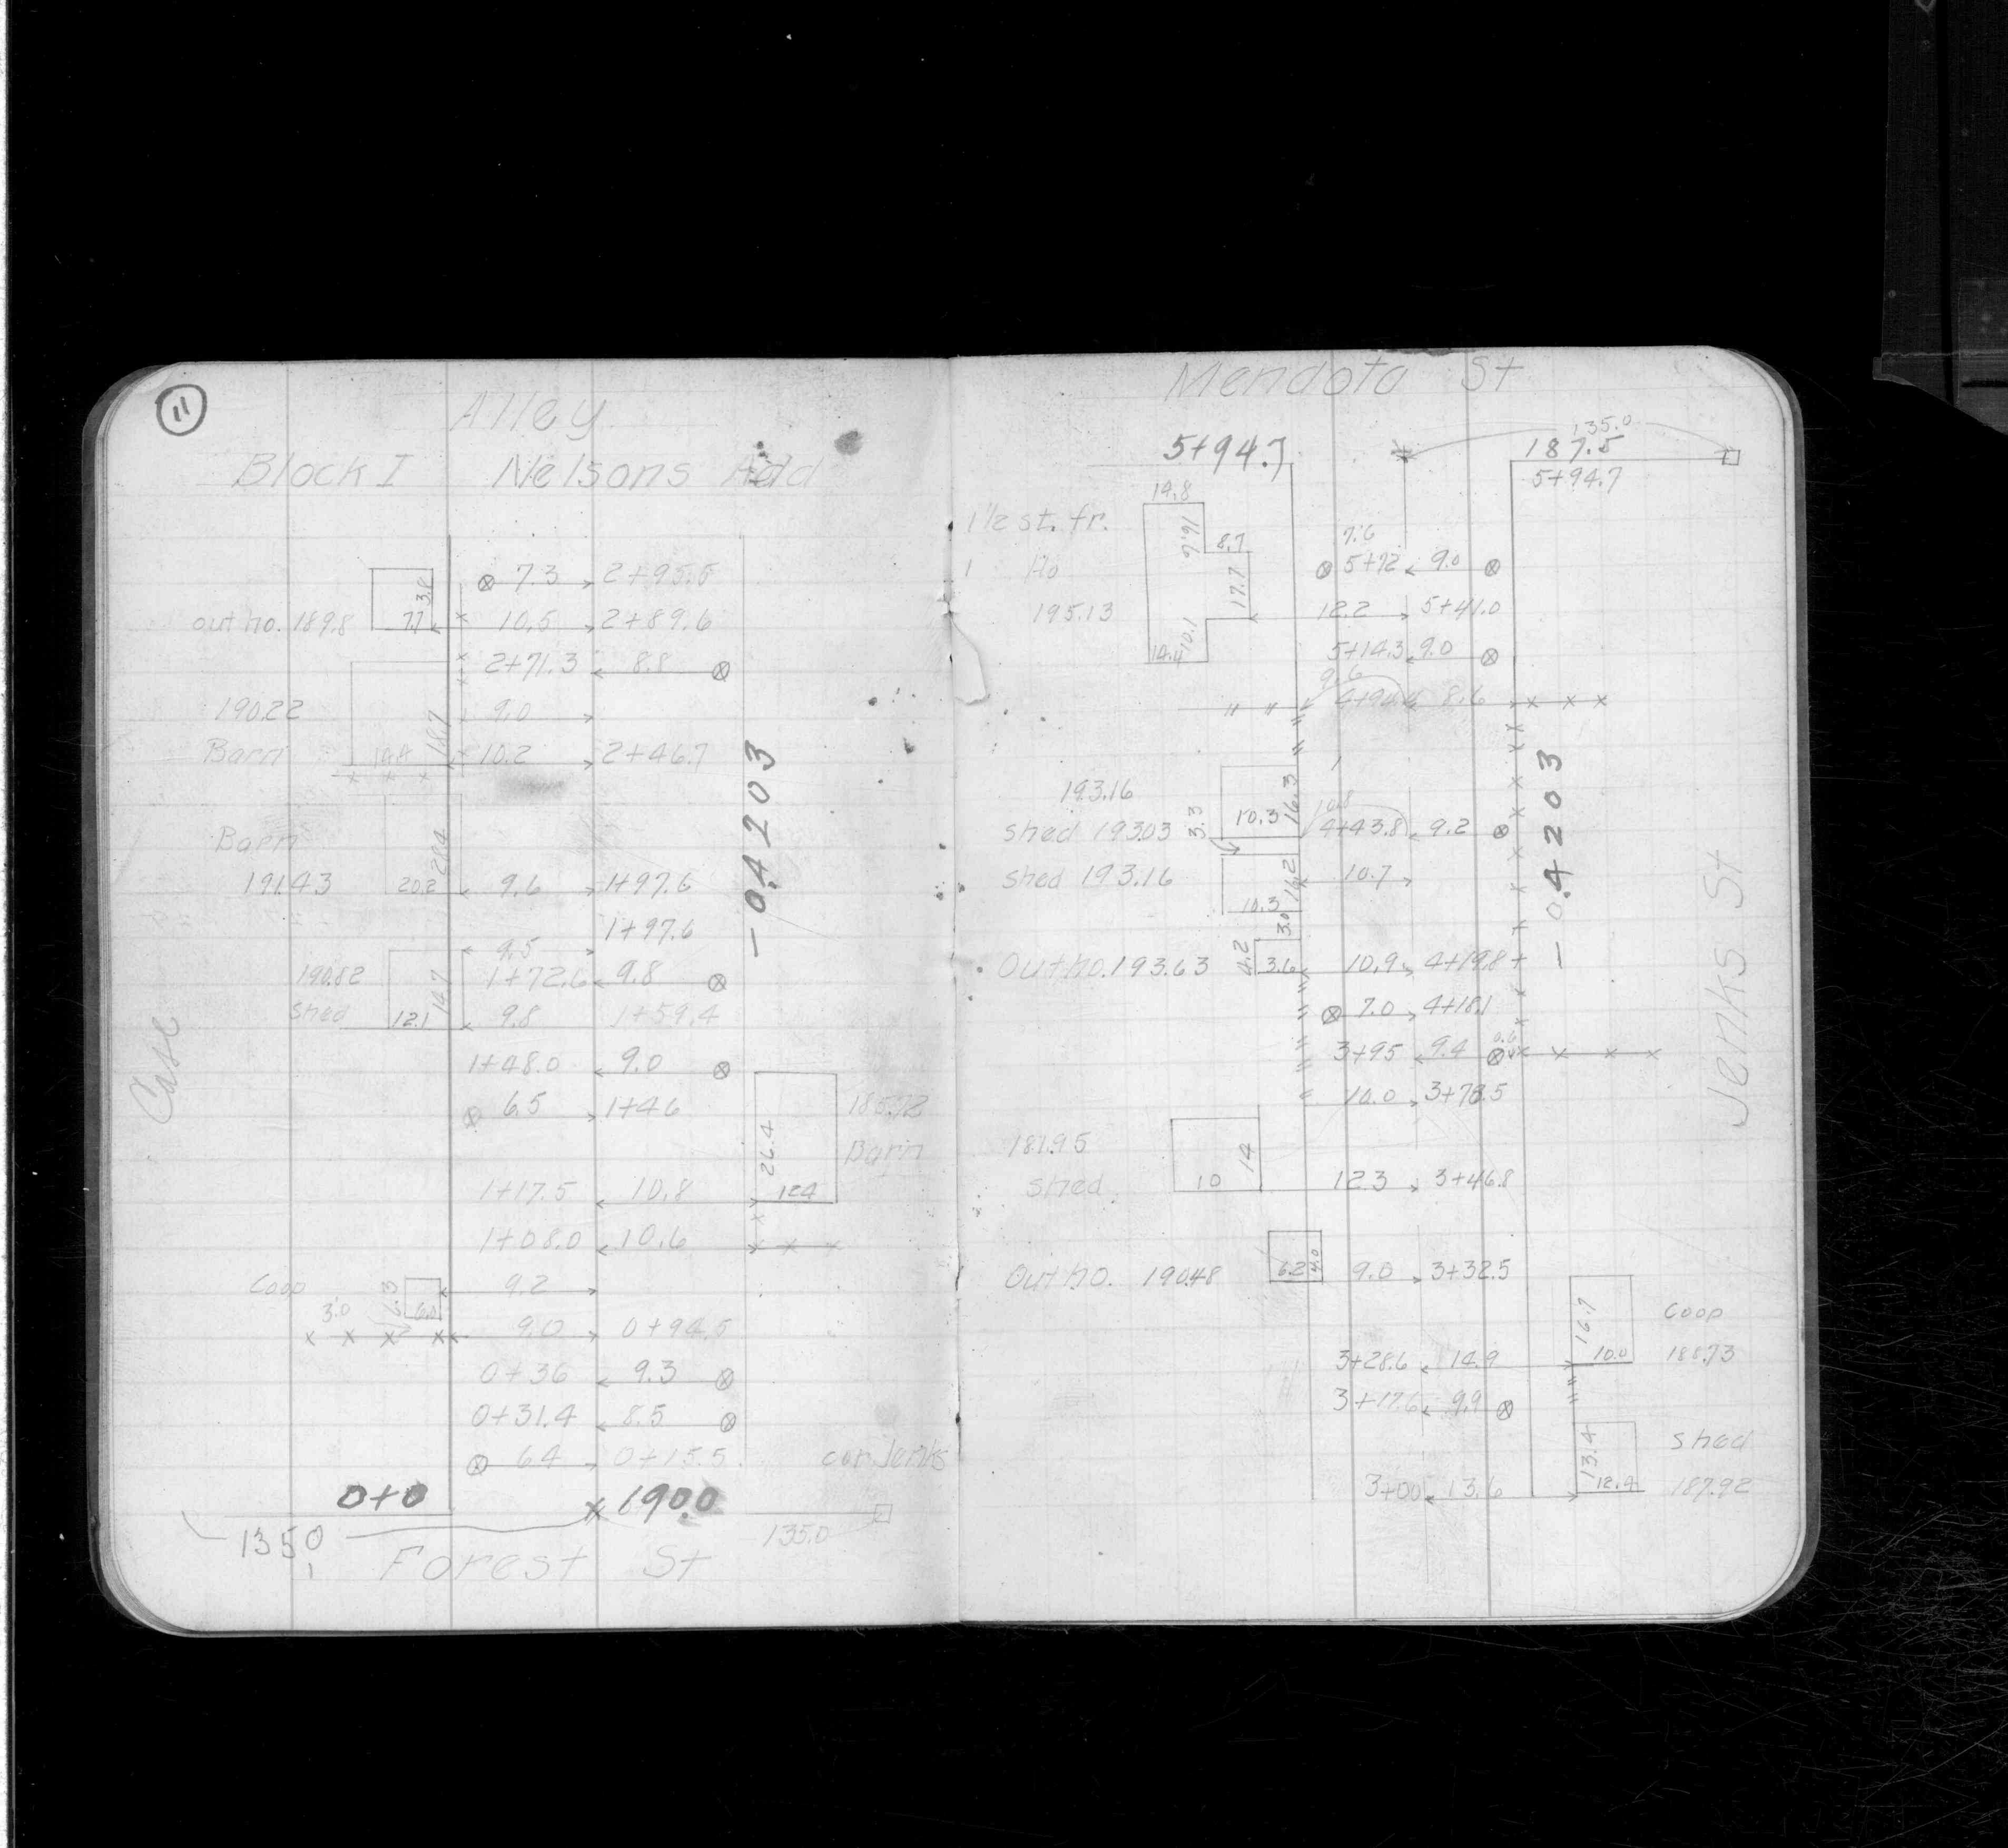 11
Alley
Block I Nelsons Add
7.3 2+95.5
3.8
out ho. 189.8 7.7 10.5 2+89.6
2+71.3 8.8
190.22 18.7 9.0
Barn 10.2 2+46.7
- 0.4203
Barn 28.4
191.43 20.2 9.6 1+97.6
1+97.6
9.5
190.82 1+72.6 9.8
shed 12.1 14.7 9.8 1+59.4
Case
1+48.0 9.0
6.5 1+46 185.72
26.4 Barn
1+17.5 10.8 12.4
1+08.0 10.6
Coop 6.3 6.0 9.2
3.0 9.0 0+94.5
0+36 9.3
0+31.4 8.5
6.4 0+15.5 cor Jenks
0+0 190.0
135.0 135.0
Forest St
Mendota St
135.0
5+94.7 187.5
5+94.7
14.8
1 1/2 st. fr. 16.6 8.7 7.6
1 Ho 17.7 5+72 9.0
195.13 12.2 5+41.0
14.4 10.1 5+14.3 9.0
9.6
4+94.4 8.6
193.16 16.3
shed 193.03 3.3 10.3 10.8 4+43.8 9.2
- 0.4203
shed 193.16 16.2 10.7
10.3 3.0
Out ho. 193.63 4.2 3.6 10.9 4+19.8
7.0 4+18.1
3+95 9.4 0.6
10.0 3+78.5
Jenks St
181.95 14
shed 10 12.3 3+46.8
Out ho. 190.48 6.2 4.0 9.0 3+32.5
16.7 Coop
3+28.6 14.9 10.0 188.73
3+17.6 9.9
13.4 shed
3+00 13.6 12.4 187.92